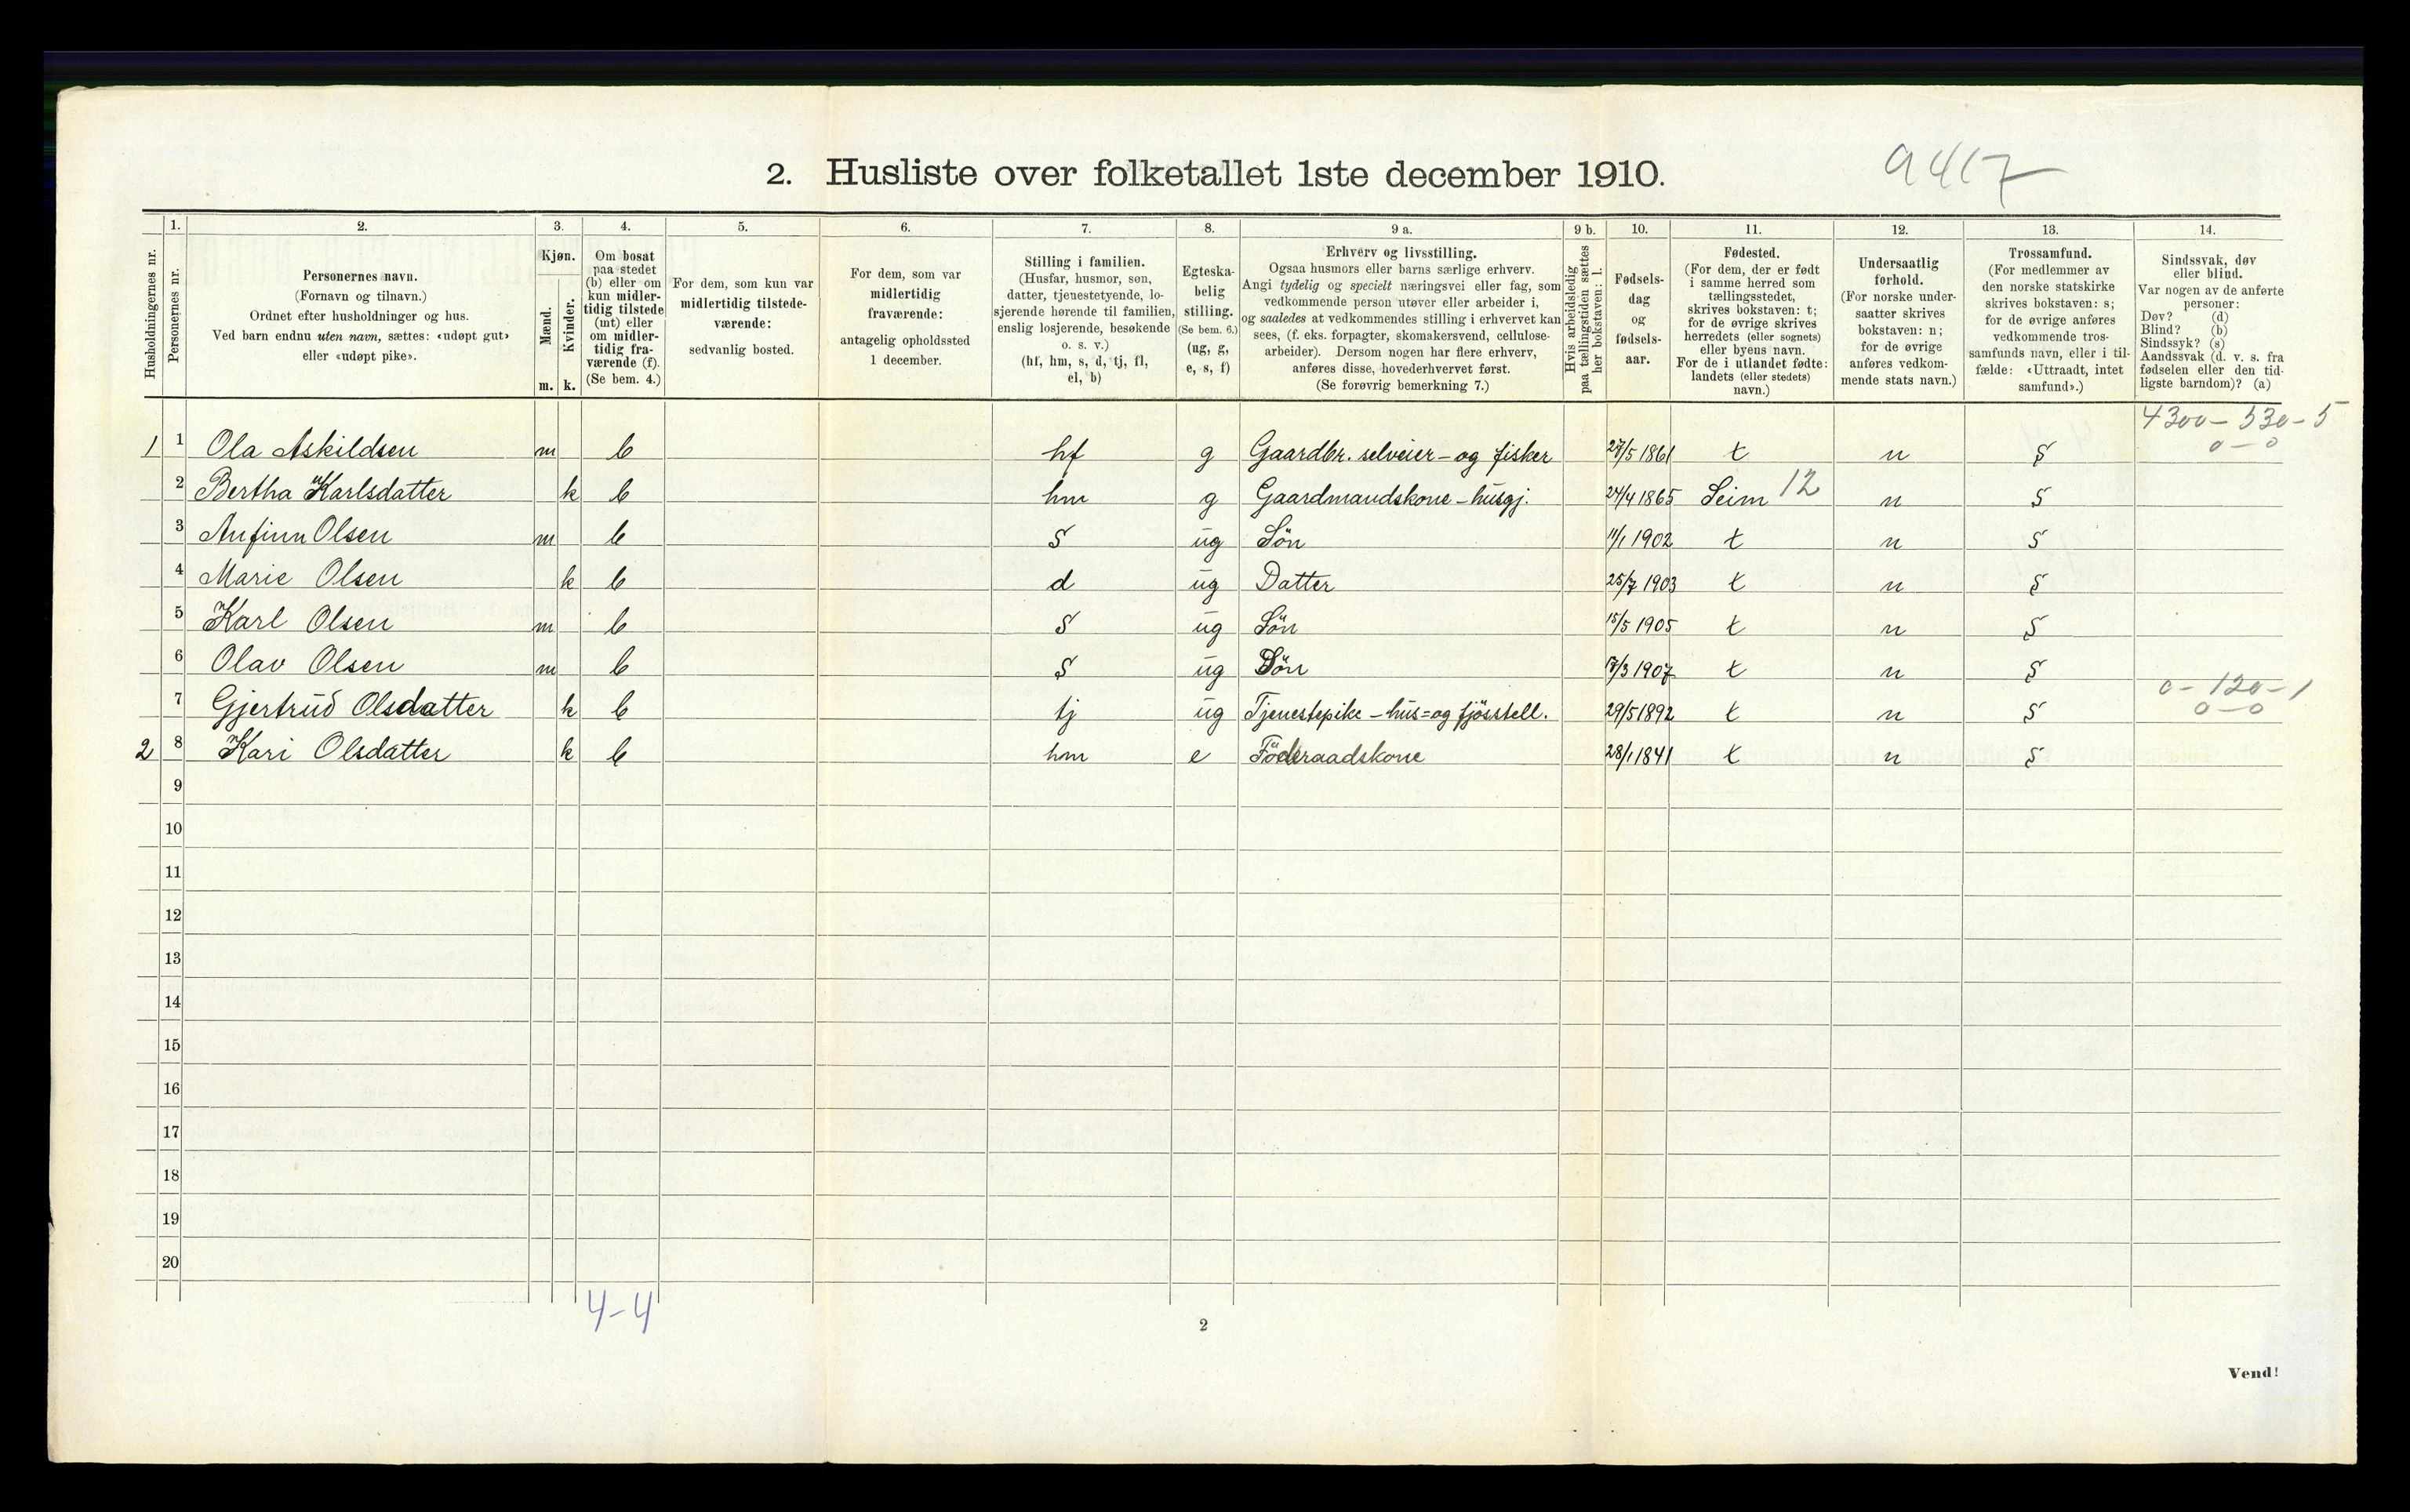 2. Husliste over folketallet 1ste december 1910.
9417
Husholdningernes nr.
1.
Personernes nr.
2.
Personernes navn.
(Fornavn og tilnavn.)
Ordnet efter husholdninger og hus.
Ved barn endnu uten navn, sættes: «udøpt gut»
eller «udøpt pike».
3.
Kjøn.
Mænd.
m.
Kvinder.
k.
4.
Om bosat
paa stedet
(b) eller om
kun midler-
tidig tilstede
(mt) eller
om midler-
tidig fra-
værende (f).
(Se bem. 4.)
5.
For dem, som kun var
midlertidig tilstede-
værende:
sedvanlig bosted.
6.
For dem, som var
midlertidig
fraværende:
antagelig opholdssted
1 december.
7.
Stilling i familien.
(Husfar, husmor, søn,
datter, tjenestetyende, lo-
sjerende hørende til familien,
enslig losjerende, besøkende
o. s. v.)
(hf, hm, s, d, tj, fl,
el, b)
8.
Egteska-
belig
stilling.
(Se bem. 6.)
(ug, g,
e, s, f)
9 a.
Erhverv og livsstilling.
Ogsaa husmors eller barns særlige erhverv.
Angi tydelig og specielt næringsvei eller fag, som
vedkommende person utøver eller arbeider i,
og saaledes at vedkommendes stilling i erhvervet kan
sees, (f. eks. forpagter, skomakersvend, cellulose-
arbeider). Dersom nogen har flere erhverv,
anføres disse, hovederhvervet først.
(Se forøvrig bemerkning 7.)
9 b.
Hvis arbeidsledig
paa tællingstiden sættes
her bokstaven: l.
10.
Fødsels-
dag
og
fødsels-
aar.
11.
Fødested.
(For dem, der er født
i samme herred som
tællingsstedet,
skrives bokstaven: t;
for de øvrige skrives
herredets (eller sognets)
eller byens navn.
For de i utlandet fødte:
landets (eller stedets)
navn.)
12.
Undersaatlig
forhold.
(For norske under-
saatter skrives
bokstaven: n;
for de øvrige
anføres vedkom-
mende stats navn.)
13.
Trossamfund.
(For medlemmer av
den norske statskirke
skrives bokstaven: s;
for de øvrige anføres
vedkommende tros-
samfunds navn, eller i til-
fælde: «Uttraadt, intet
samfund».)
14.
Sindssvak, døv
eller blind.
Var nogen av de anførte
personer:
Døv? (d)
Blind? (b)
Sindssyk? (s)
Aandssvak (d. v. s. fra
fødselen eller den tid-
ligste barndom)? (a)
4300 – 530 – 5
0 – 0
1 1 Ola Askildsen m b hf g Gaardbr. selveier – og fisker 27/5 1861 t n s
2 Bertha Karlsdatter k b hm g Gaardmandskone – husgj. 24/4 1865 Seim 12 n s
3 Anfinn Olsen m b s ug Sön 11/1 1902 t n s
4 Marie Olsen k b d ug Datter 25/7 1903 t n s
5 Karl Olsen m b s ug Sön 15/5 1905 t n s
6 Olav Olsen m b s ug Sön 17/3 1907 t n s
0 – 120 – 1
0 – 0
7 Gjertrud Olsdatter k b tj ug Tjenestepike – hus= og fjösstell. 29/5 1892 t n s
2 8 Kari Olsdatter k b hm e Föderaadskone 28/1 1841 t n s
9
10
11
12
13
14
15
16
17
18
19
20
4-4
2
Vend!